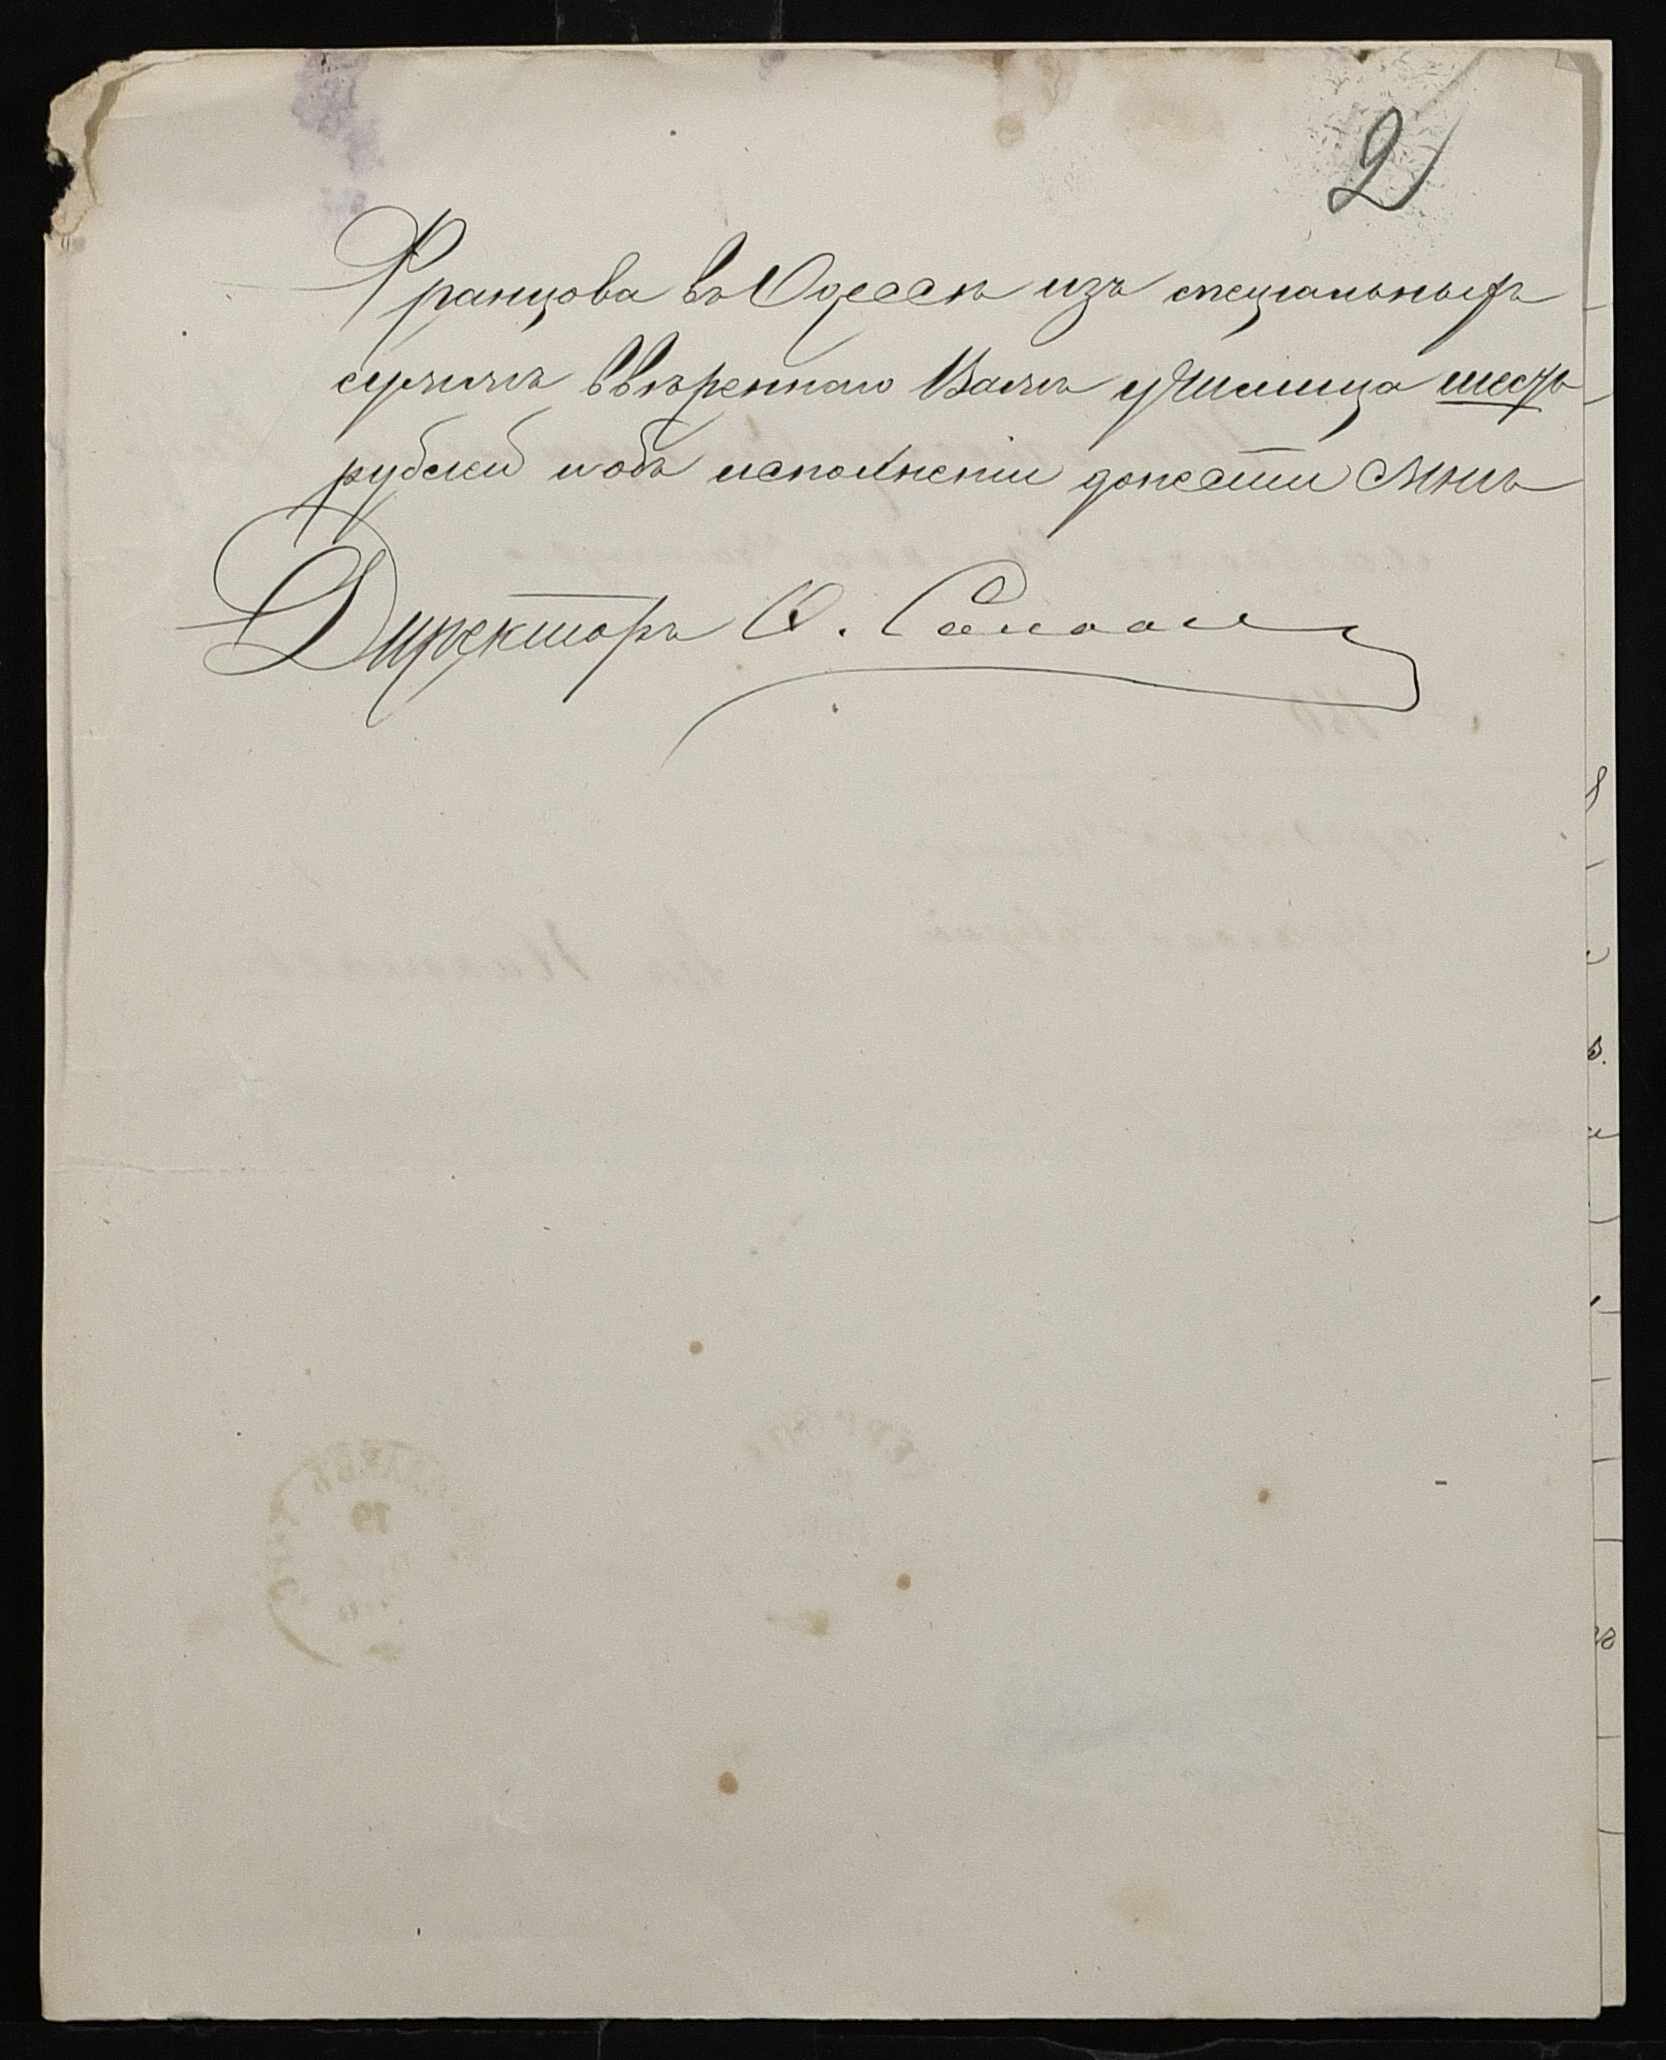 2
Францова въ Одессѣ изъ спеціальныхъ
суммъ ввѣреннаго Вамъ училища шесть
рублей и объ исполненіи донести мнѣ
Директоръ
19